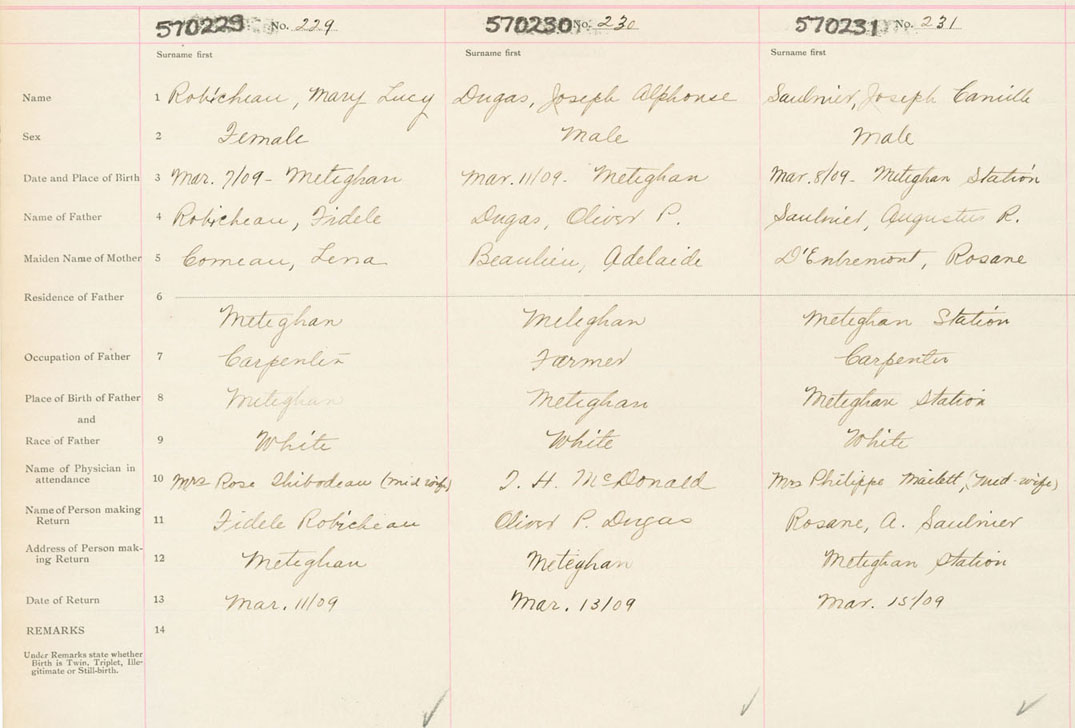 570229 No. 229 570230 No. 230 570231 No. 231
Surname first Surname first Surname first
Name 1 Robicheau, Mary Lucy Dugas, Joseph Alphonse Saulnier, Joseph Camille
Sex 2 Female Male Male
Date and Place of Birth 3 Mar. 7/09 - Meteghan Mar. 11/09 - Meteghan Mar. 8/09 - Meteghan Station
Name of Father 4 Robicheau, Fidele Dugas, Oliver P. Saulnier, Augustus R.
Maiden Name of Mother 5 Comeau, Lena Beaulieu, Adelaide D'Entremont, Rosane
Residence of Father 6
Meteghan Meteghan Meteghan Station
Occupation of Father 7 Carpenter Farmer Carpenter
Place of Birth of Father 8 Meteghan Meteghan Meteghan Station
and
Race of Father 9 White White White
Name of Physician in
attendance 10 Mrs Rose Thibodeau (mid wife) T. H. McDonald Mrs Philippe Mailett, (mid-wife)
Name of Person making
Return 11 Fidele Robicheau Oliver P. Dugas Rosane, A. Saulnier
Address of Person mak-
ing Return 12 Meteghan Meteghan Meteghan Station
Date of Return 13 Mar. 11/09 Mar. 13/09 Mar. 15/09
REMARKS 14
Under Remarks state whether
Birth is Twin, Triplet, Ille-
gitimate or Still-birth.